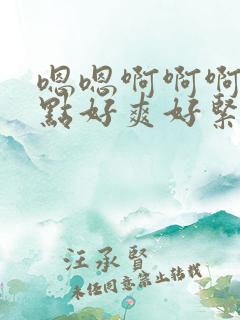 嗯嗯啊啊啊
點好爽好緊
汪承賢
未經同意禁止轉載